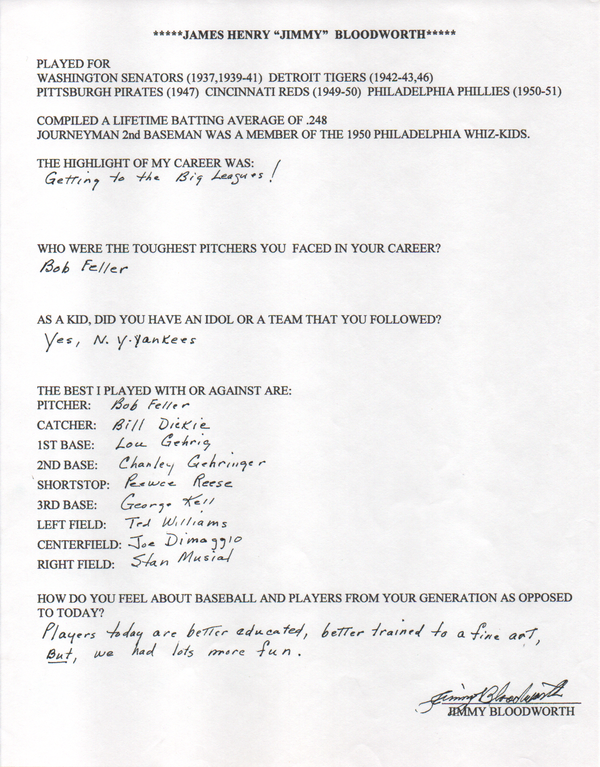 *****JAMES HENRY “JIMMY” BLOODWORTH*****
PLAYED FOR
WASHINGTON SENATORS (1937,1939-41) DETROIT TIGERS (1942-43,46)
PITTSBURGH PIRATES (1947) CINCINNATI REDS (1949-50) PHILADELPHIA PHILLIES (1950-51)
COMPILED A LIFETIME BATTING AVERAGE OF .248
JOURNEYMAN 2nd BASEMAN WAS A MEMBER OF THE 1950 PHILADELPHIA WHIZ-KIDS.
THE HIGHLIGHT OF MY CAREER WAS:
Getting to the Big Leagues!
WHO WERE THE TOUGHEST PITCHERS YOU FACED IN YOUR CAREER?
Bob Feller
AS A KID, DID YOU HAVE AN IDOL OR A TEAM THAT YOU FOLLOWED?
Yes, N.Y. Yankees
THE BEST I PLAYED WITH OR AGAINST ARE:
PITCHER: Bob Feller
CATCHER: Bill Dickie
1ST BASE: Lou Gehrig
2ND BASE: Charley Gehringer
SHORTSTOP: Peewee Reese
3RD BASE: George Kell
LEFT FIELD: Ted Williams
CENTERFIELD: Joe Dimaggio
RIGHT FIELD: Stan Musial
HOW DO YOU FEEL ABOUT BASEBALL AND PLAYERS FROM YOUR GENERATION AS OPPOSED
TO TODAY?
Players today are better educated, better trained to a fine art,
But, we had lots more fun.
Jimmy Bloodworth
JIMMY BLOODWORTH